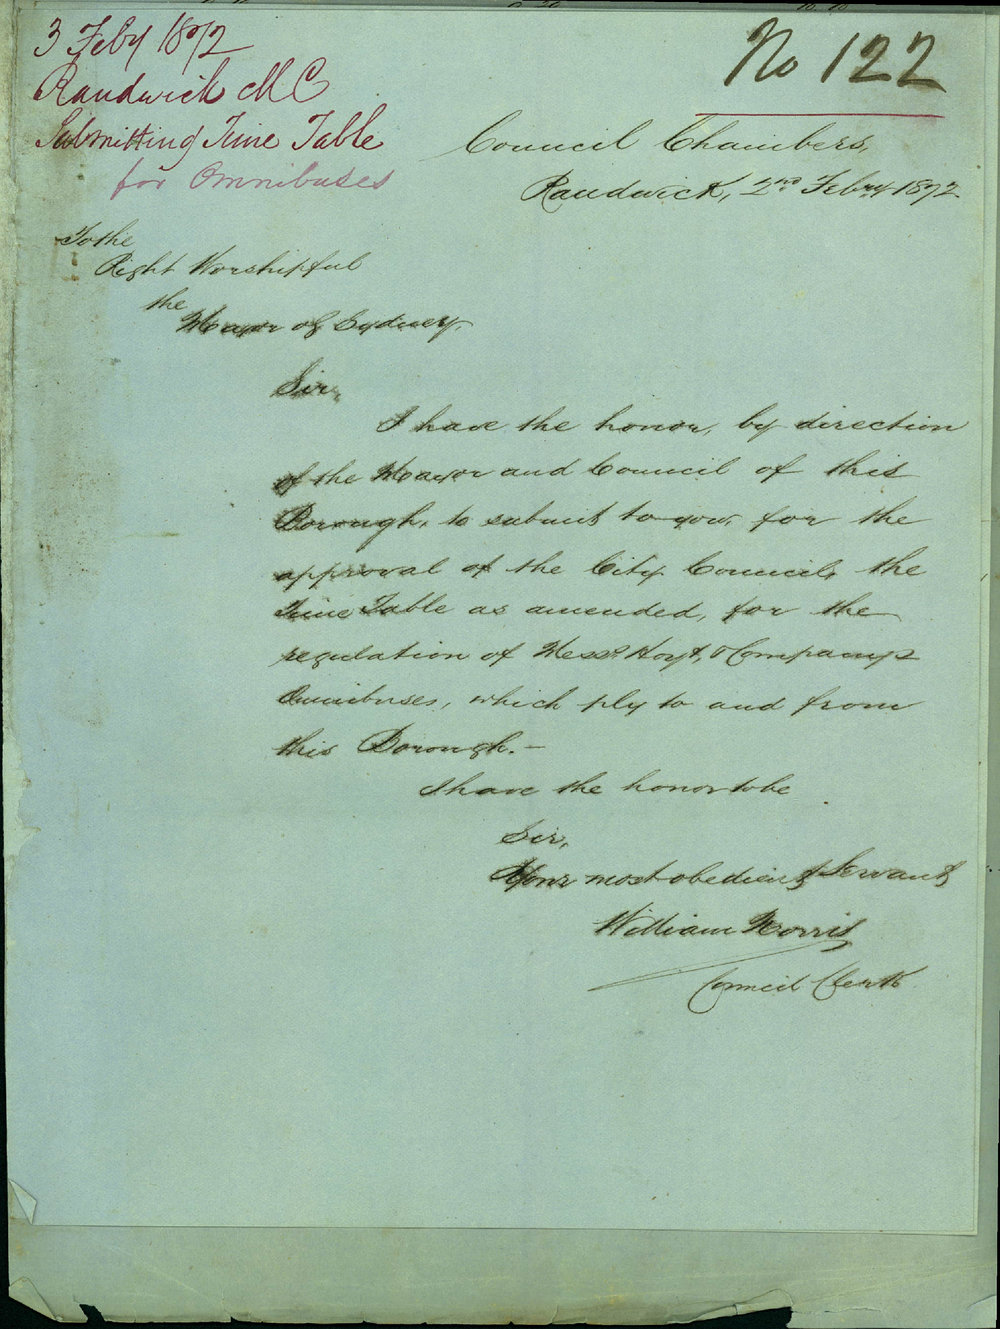 3 Feby 1872
Randwick M C
Submitting Time Table
for Omnibuses
No 122
Council Chambers,
Randwick, 2nd Febry 1872
To the
Right Worshipful
the
Mayor of Sydney.
Sir,
I have the honor, by direction
of the Mayor and Council of this
Borough, to submit to you, for the
approval of the City Council, the
Time Table as amended, for the
regulation of Messrs Hoyt, & Company's
Omnibuses, which ply to and from
this Borough. —
I have the honor to be
Sir,
Your most obedient Servant
William Norris
Council Clerk